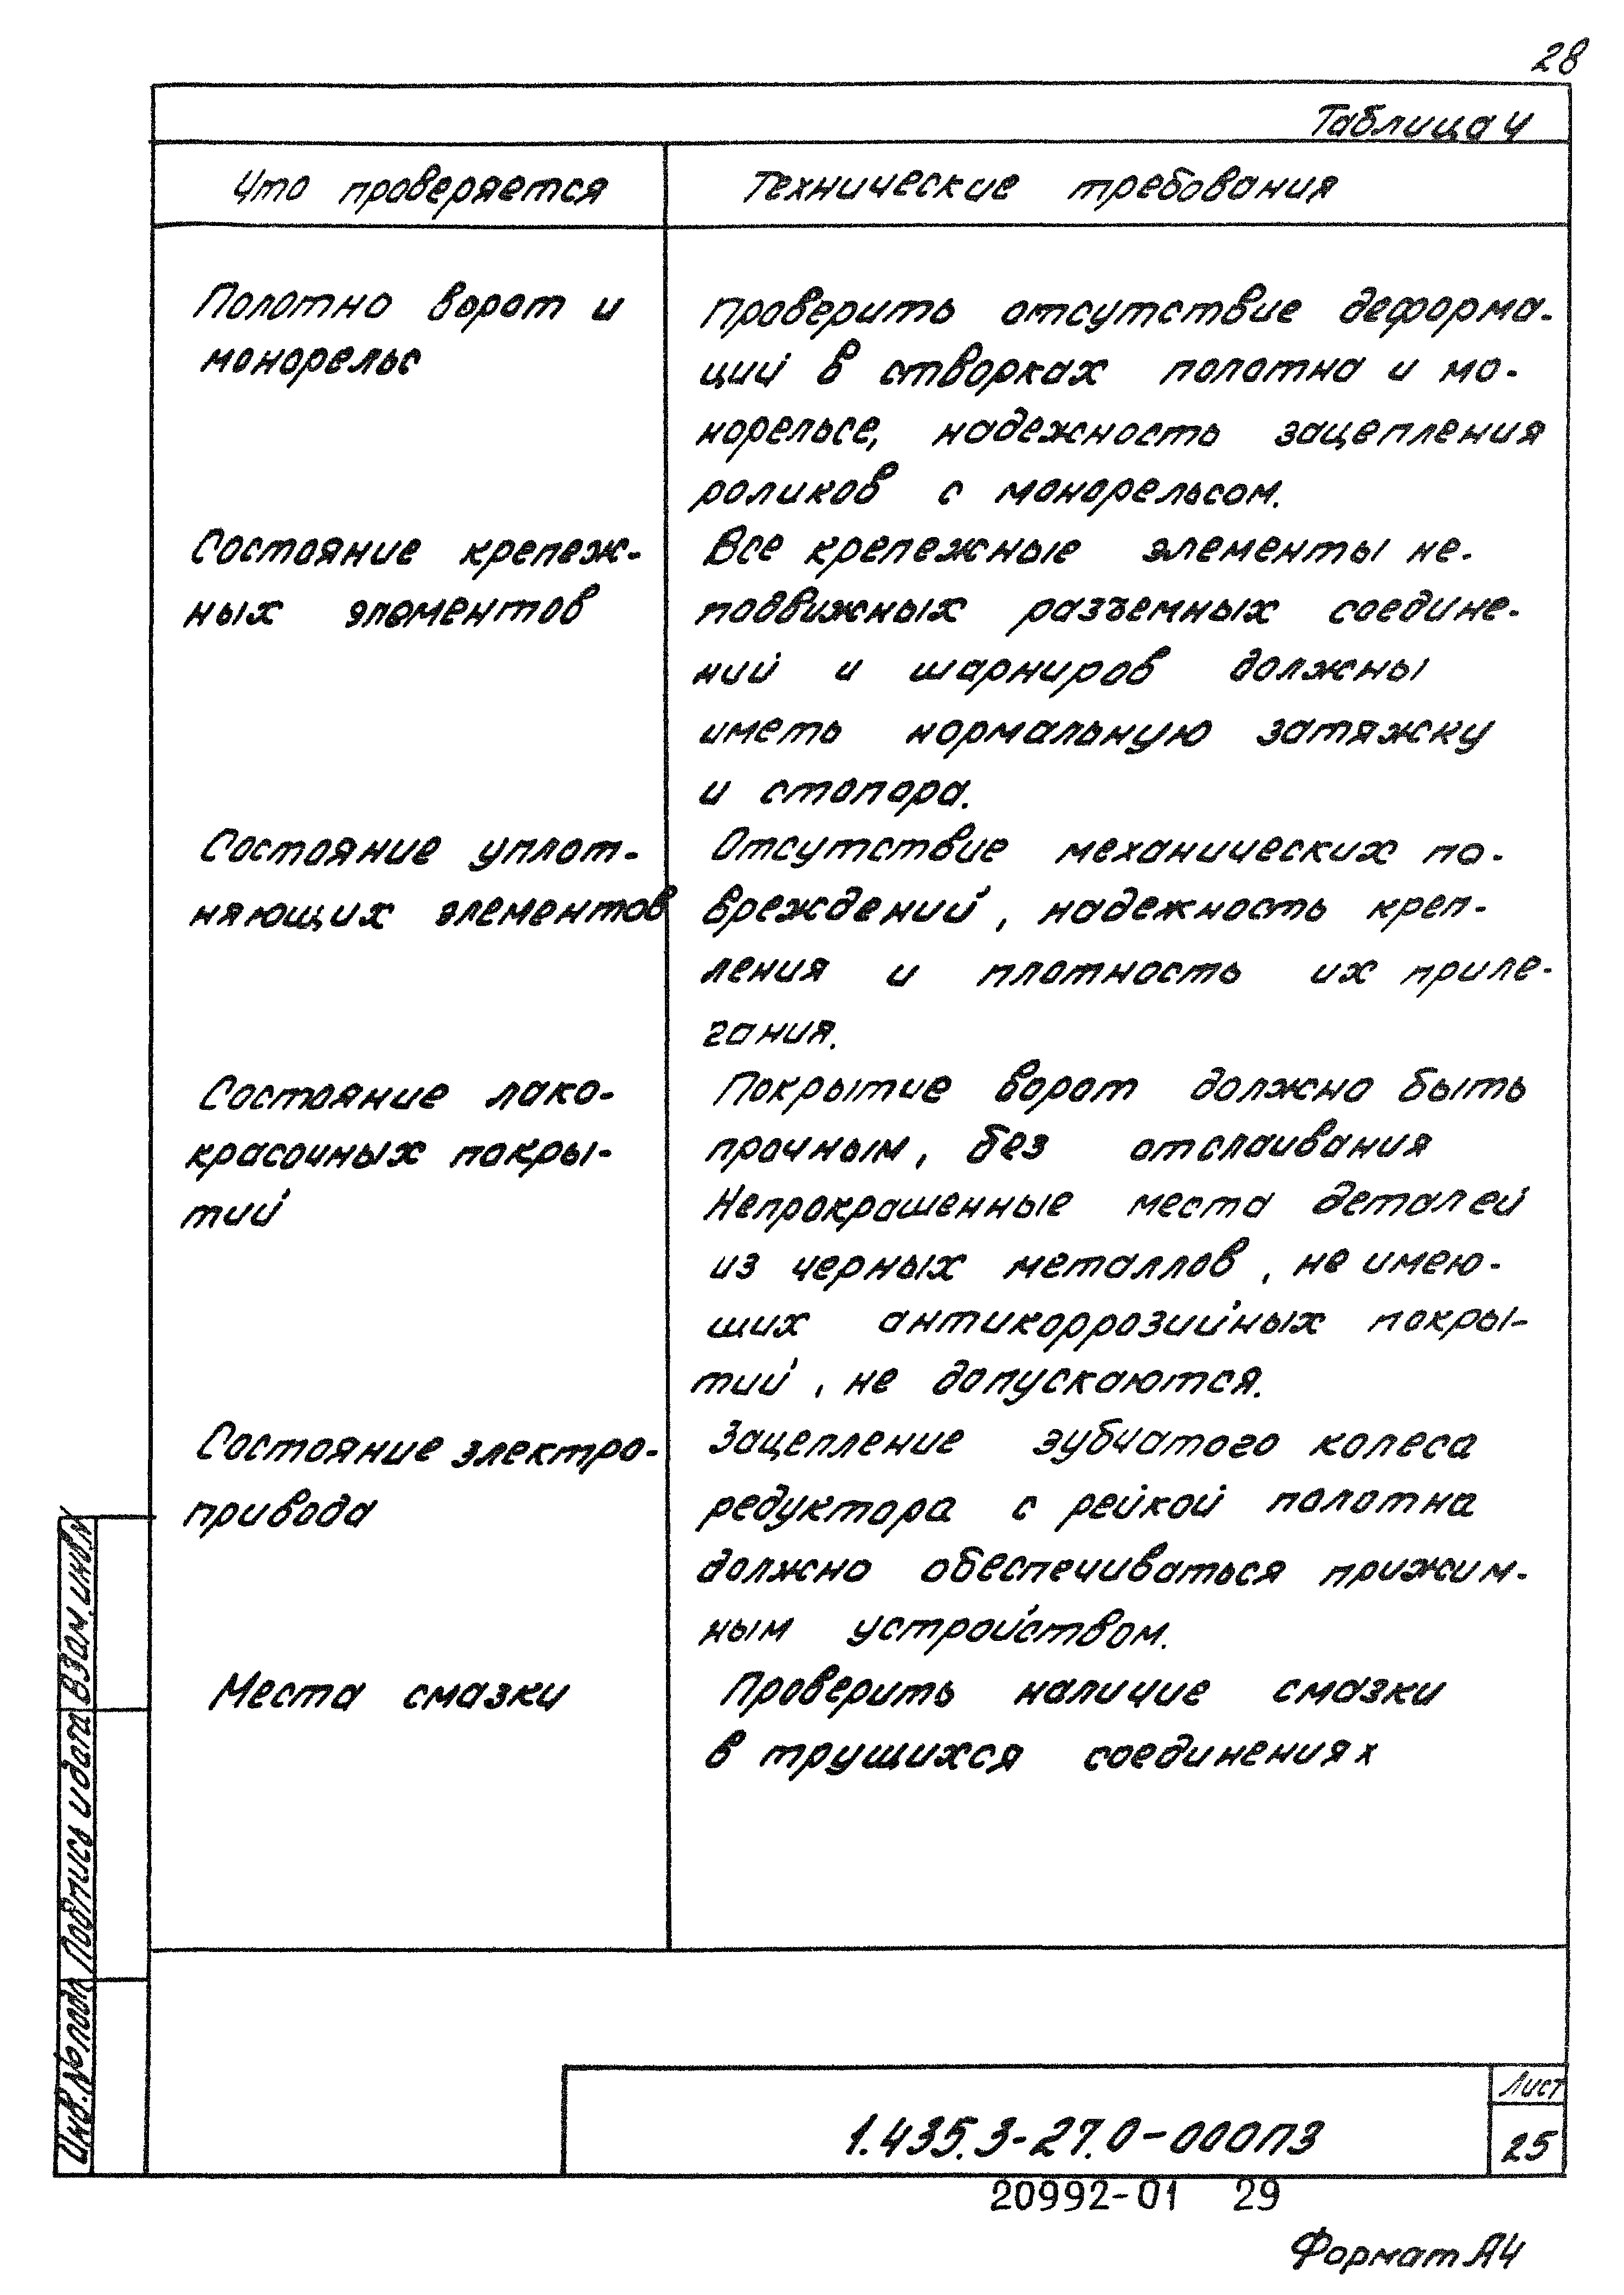 28
Таблица 4
Что проверяется
Технические требования
Полотно ворот и
монорельс
Проверить отсутствие деформа-
ций в створках полотна и мо-
норельсе, надежность зацепления
роликов с монорельсом.
Состояние крепеж-
ных элементов
Все крепежные элементы не-
подвижных разъемных соедине-
ний и шарниров должны
иметь нормальную затяжку
и стопора.
Состояние уплот-
няющих элементов
Отсутствие механических по-
вреждений, надежность креп-
ления и плотность их приле-
гания.
Состояние лако-
красочных покры-
тий
Покрытие ворот должно быть
прочным, без отслаивания
Непрокрашенные места деталей
из черных металлов, не имею-
ших антикоррозийных покры-
тий, не допускаются.
Состояние электро-
привода
Зацепление зубчатого колеса
редуктора с рейкой полотна
должно обеспечиваться прижим-
ным устройством.
Места смазки
Проверить наличие смазки
в трущихся соединениях
Взам. инв №
Подпись и дата
Инв. № подл
1.435.3-27.0-000ПЗ
Лист
25
20992-01 29
Формат А4